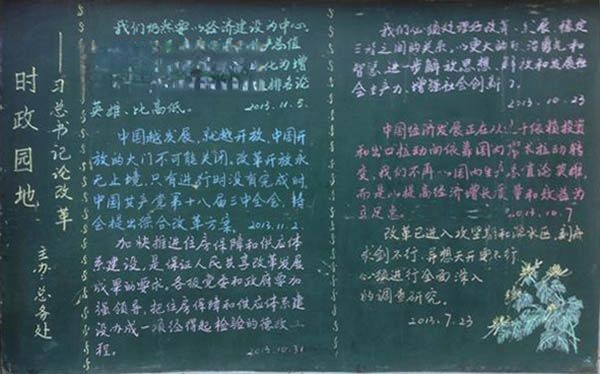 时政园地
——习总书记论改革
主办：总务处
我们仍然要以经济建设为中心
总值
化为增
排名论
英雄、比高低。 2013.11.5.
中国越发展，就越开放，中国开
放的大门不可能关闭。改革开放永
无止境，只有进行时没有完成时。
中国共产党第十八届三中全会，将
会提出综合改革方案。 2013.11.2
加快推进住房保障和供应体
系建设，是保证人民共享改革发展
成果的要求。各级党委和政府要加
强领导，把住房保障和供应体系建
设办成一项经得起检验的德政工
程。 2013.10.31
我们必须处理好改革、发展、稳定
三者之间的关系，以更大的 勇气和
智慧，进一步解放思想、解放和发展社
会生产力、增强社会创新
2013.10.23
中国经济发展正在从 依赖投资
和出口拉动向依靠国内需求拉动转
变，我们不再以国内生产总值论英雄，
而是以提高经济增长质量和效益为
立足点。 2013.10.7
改革已进入攻坚期和深水区，刻舟
求剑不行，异想天开更不行
必须进行全面深入
的调查研究。
2013.7.23